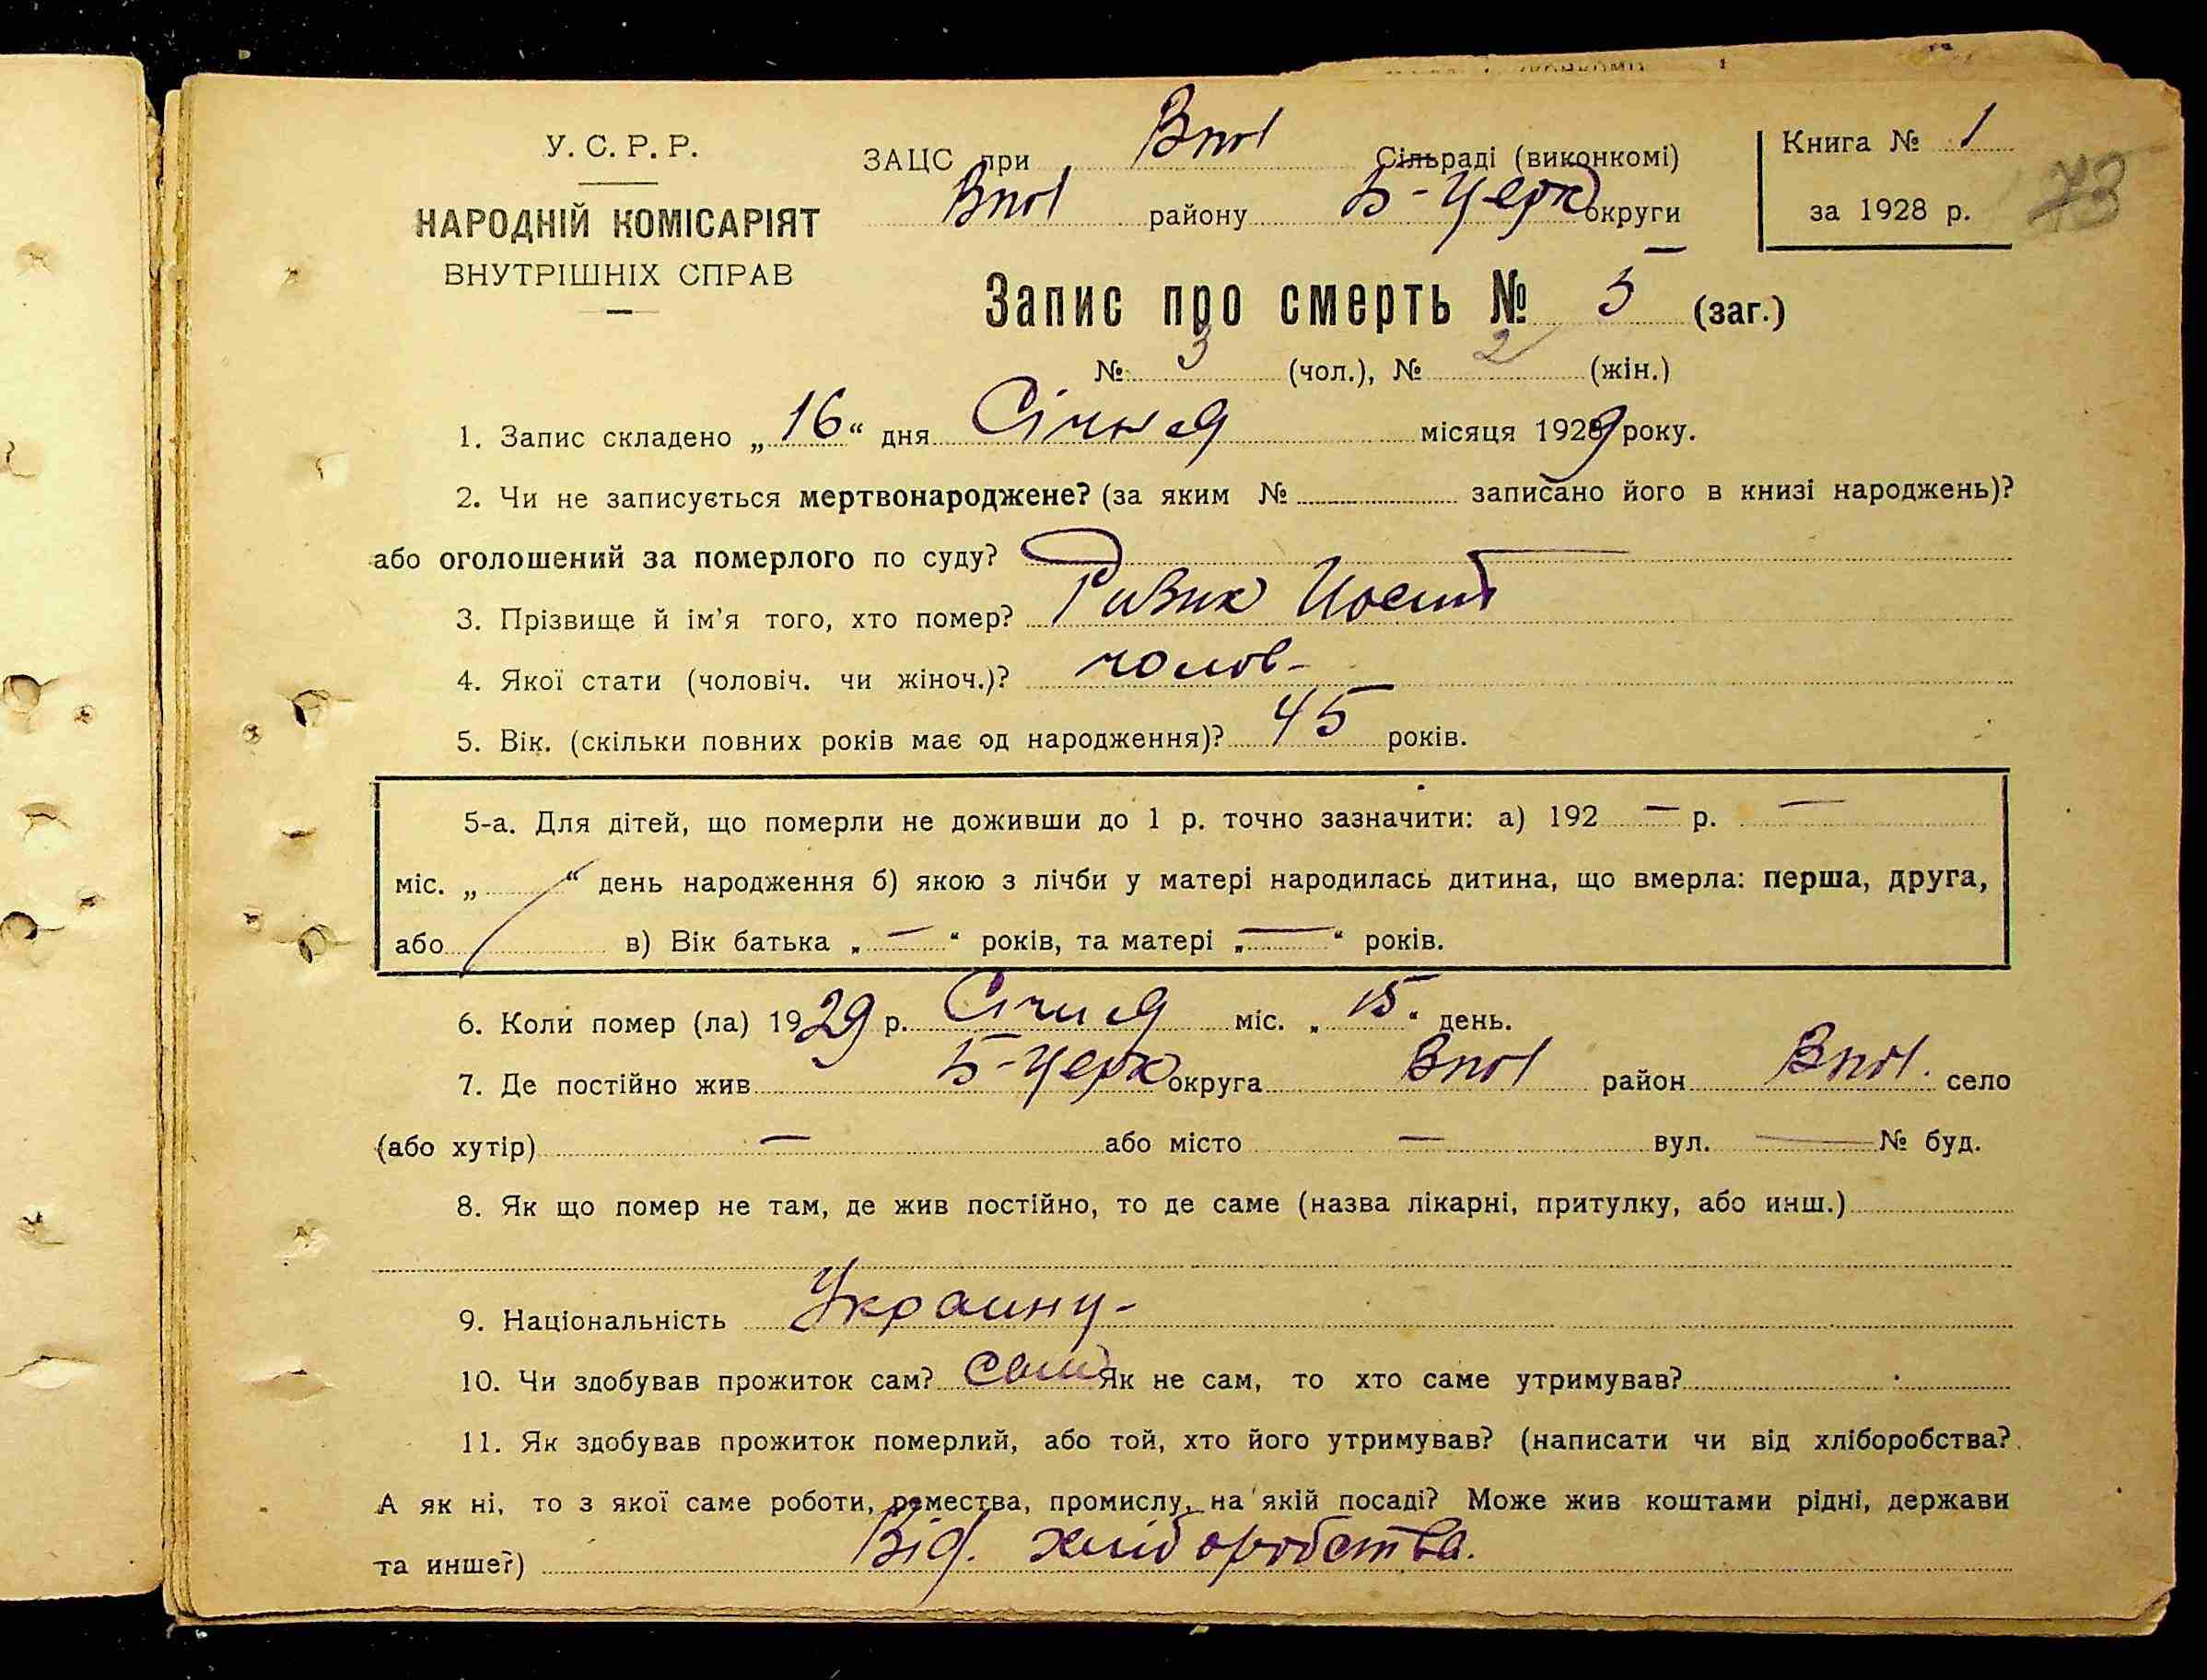 У. С. Р. Р.
НАРОДНІЙ КОМІСАРІЯТ
ВНУТРІШНІХ СПРАВ
ЗАЦС при Впол Сільраді (виконкомі)
Впол району Б-Церк округи
Книга № 1
за 1928 р.
73
Запис про смерть № 5 (заг.)
№ 3 (чол.), № 2 (жін.)
1. Запис складено „16“ дня Січня місяця 1929 року.
2. Чи не записується мертвонароджене? (за яким № записано його в книзі народжень)?
або оголошений за померлого по суду?
3. Прізвище й ім'я того, хто помер? Ривик Иосип
4. Якої стати (чоловіч. чи жіноч.)? чолов-
5. Вік. (скільки повних років має од народження)? 45 років.
5-а. Для дітей, що померли не доживши до 1 р. точно зазначити: а) 192 — р. —
міс. „ “ день народження б) якою з лічби у матері народилась дитина, що вмерла: перша, друга,
або в) Вік батька „ — “ років, та матері „ — “ років.
6. Коли помер (ла) 1929 р. Січня міс. „15“ день.
7. Де постійно жив Б-Церк округа Впол район Впол. село
(або хутір) — або місто — вул. — № буд.
8. Як що помер не там, де жив постійно, то де саме (назва лікарні, притулку, або инш.)
9. Національність Украинц-
10. Чи здобував прожиток сам? Сам Як не сам, то хто саме утримував?
11. Як здобував прожиток померлий, або той, хто його утримував? (написати чи від хліборобства?
А як ні, то з якої саме роботи, ремества, промислу, на якій посаді? Може жив коштами рідні, держави
та инше?) Від. хліборобства.